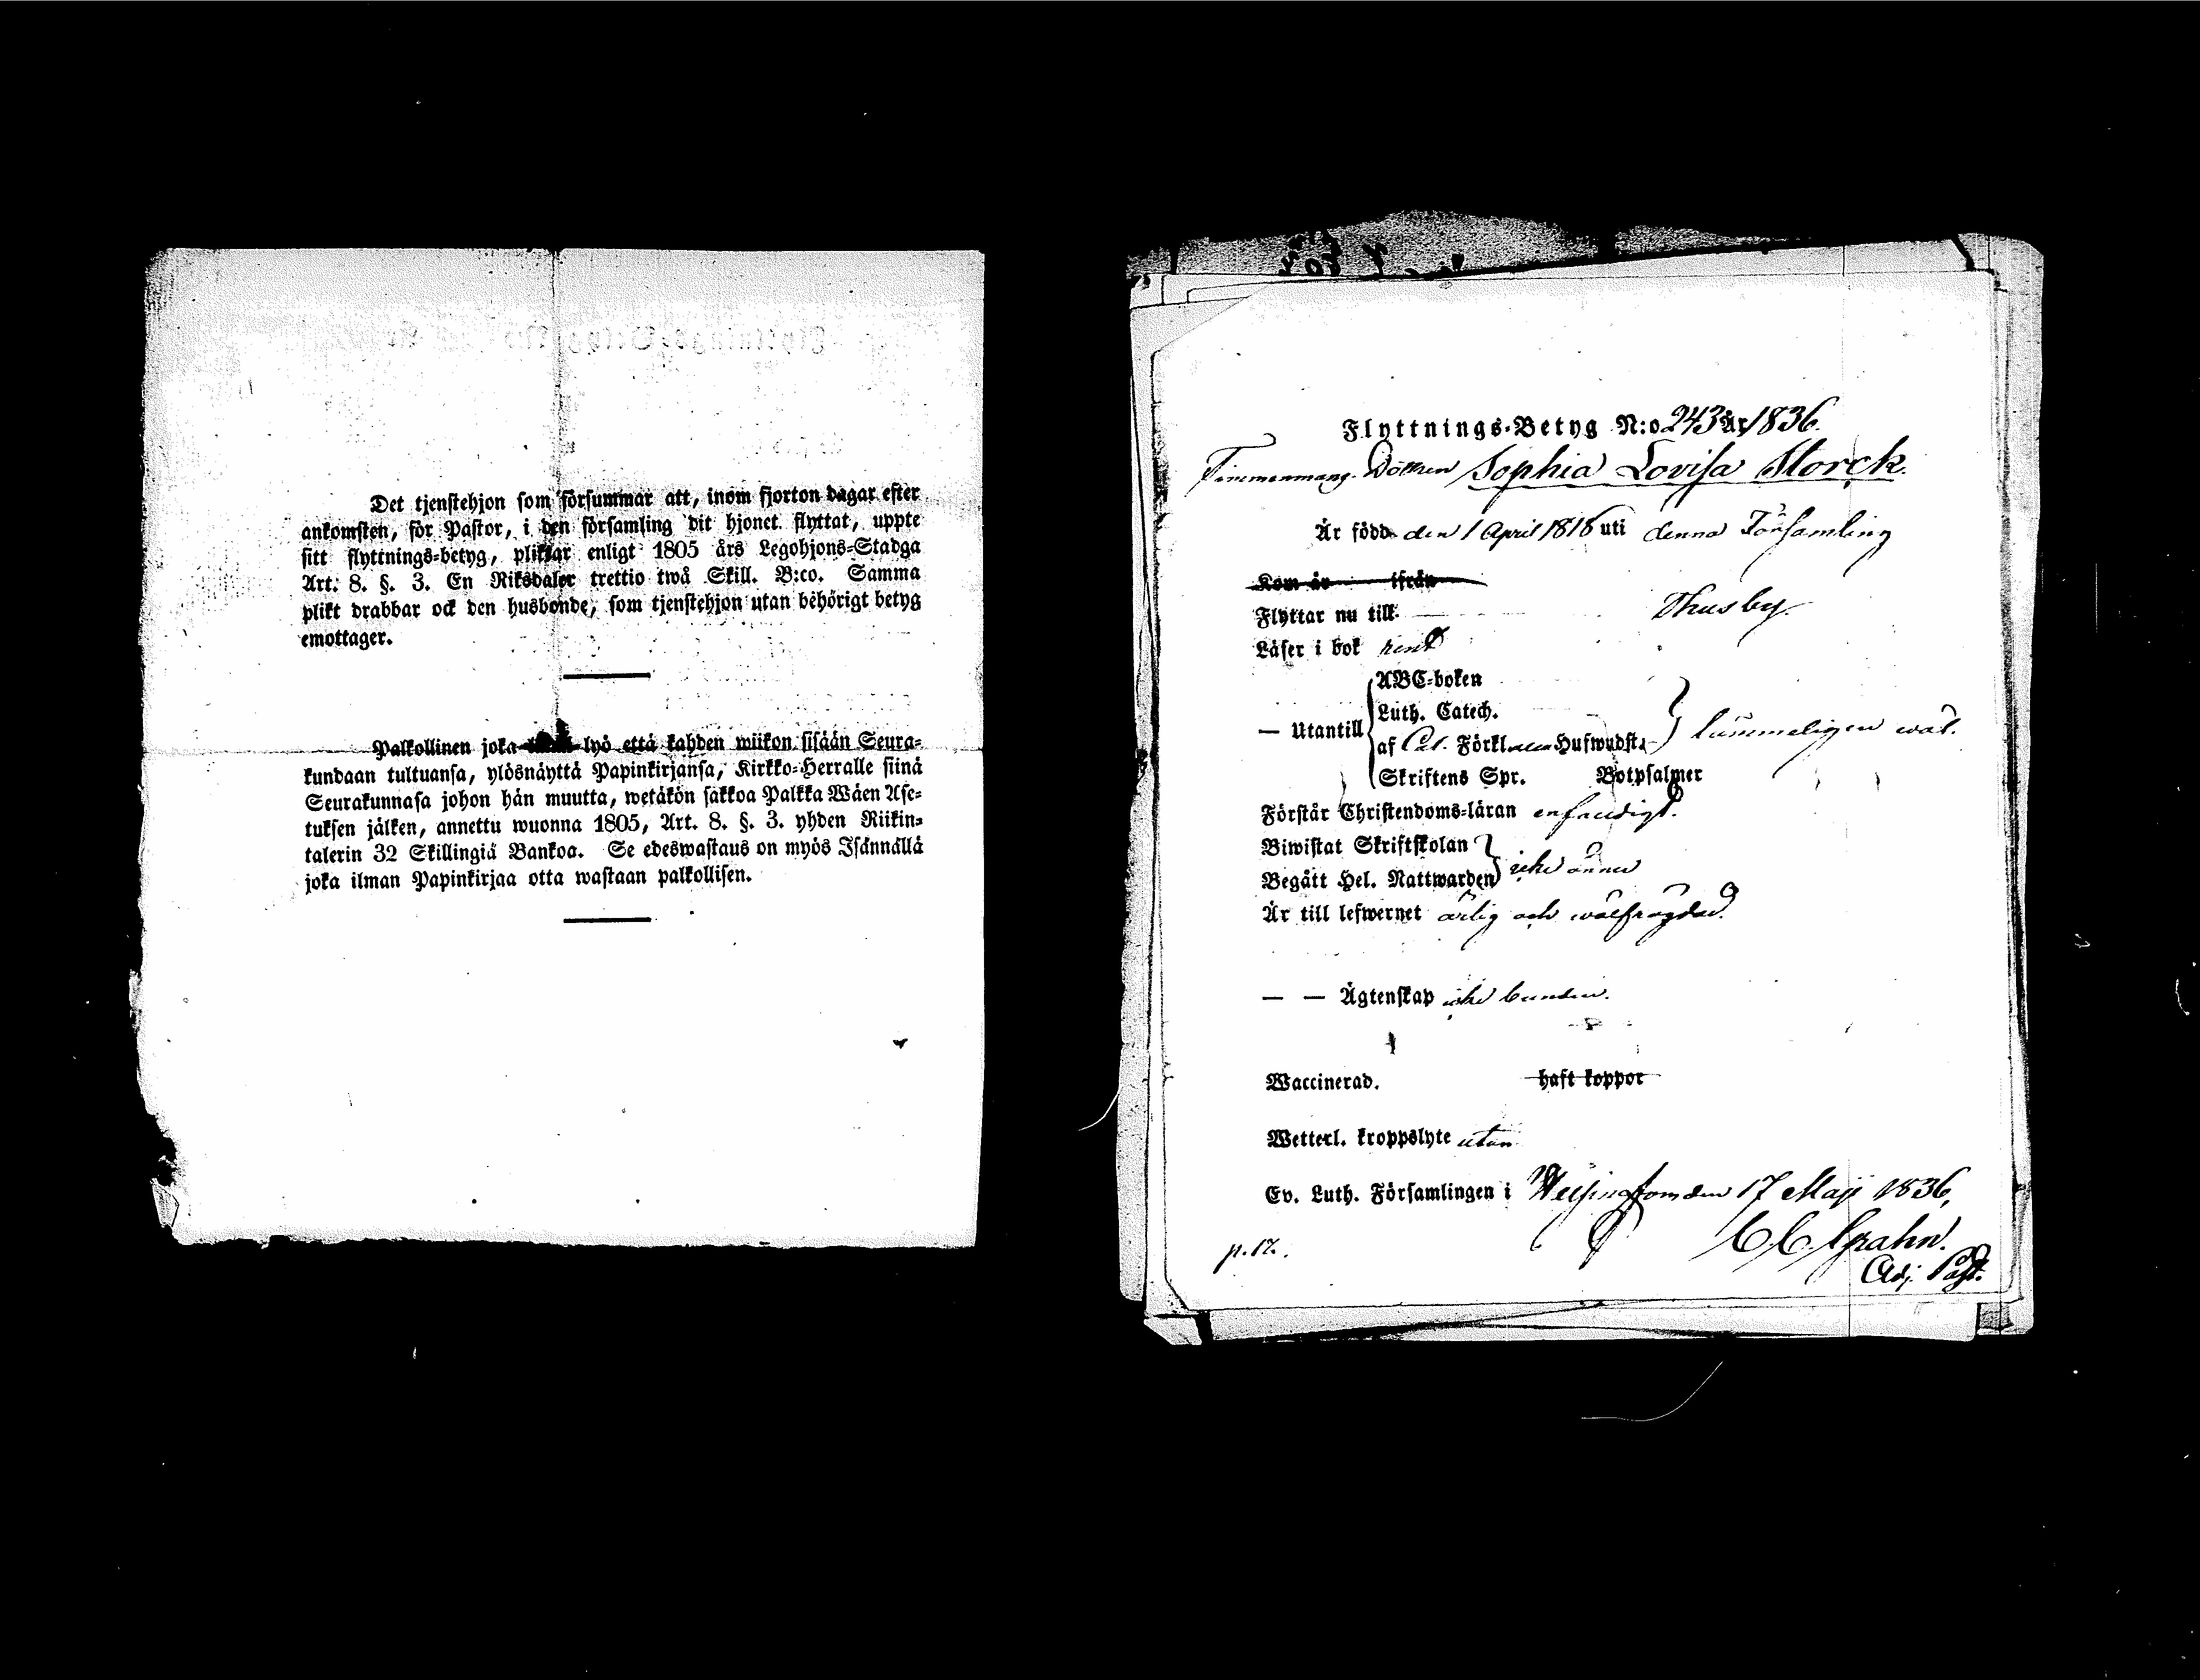 Det tjenstehjon som försummar att, inom fjorton dagar efter
ankomsten, för Pastor, i den församling dit hjonet flyttat, uppte
sitt flyttnings-betyg, pliktar enligt 1805 års Legohjons-Stadga
Art. 8. §. 3. En Riksdaler trettio twå Skill. B:co. Samma
plikt drabbar ock den husbonde, som tjenstehjon utan behörigt betyg
emottager.
Palkollinen joka lyö että kahden wiikon sisään Seura-
kundaan tultuansa, ylösnäyttä Papinkirjansa, Kirkko-Herralle siinä
Seurakunnasa johon hän muutta, wetäkön sakkoa Palkka Wäen Ase-
tuksen jälken, annettu wuonna 1805, Art. 8. §. 3. yhden Riikin-
talerin 32 Skillingiä Bankoa. Se edeswastaus on myös Isännällä
joka ilman Papinkirjaa otta wastaan palkollisen.
Flyttnings-Betyg N:o 243 År 1836.
Timmermansg. Dottren Sophia Lovisa Storck.
Är född den 1 April 1816 uti denna Församling
Kom år ifrån
Flyttar nu till Thusby.
Läser i bok rent
— Utantill
ABC-boken
Luth. Catech.
af Cat. Förkl Hufwudst.
Skriftens Spr. Botpsalmer
Förstår Christendoms-läran enfaldigt.
Biwistat Skriftskolan
Begått Hel. Nattwarden icke ännu
Är till lefwernet ärlig och wälfrägdad.
— — Ägtenskap icke bunden.
Waccinerad. haft koppor
Wetterl. kroppslyte utan
Ev. Luth. Församlingen i Helsingfors den 17 Maji 1836,
C. C. Grahn.
Adj. Past.
p. 17.